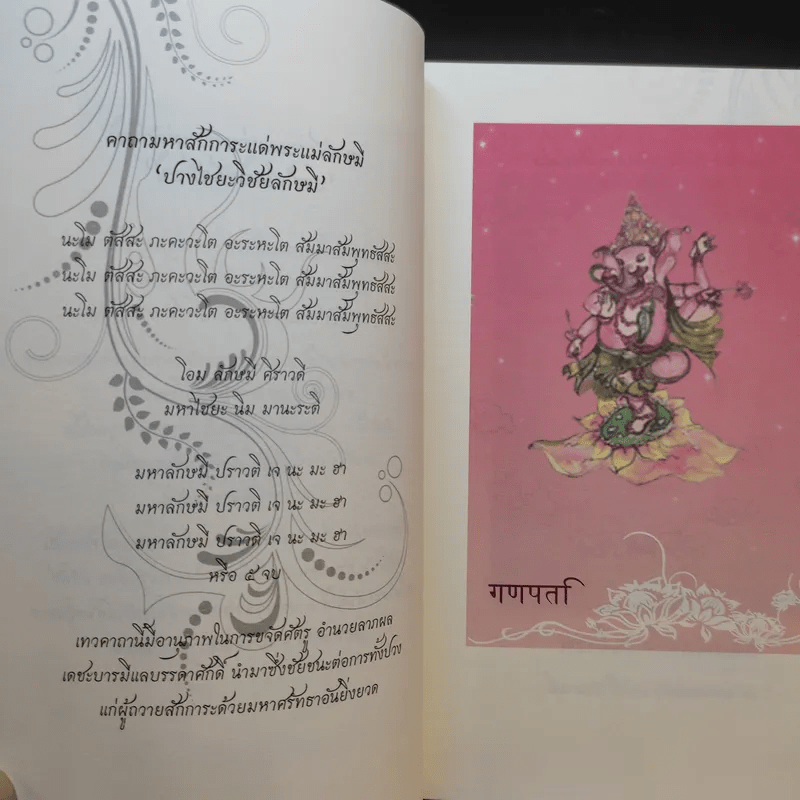 คาถามหาสักการะแด่พระแม่ลักษมี
‘ปางไชยะวิชัยลักษมี’
นะโม ตัสสะ ภะคะวะโต อะระหะโต สัมมาสัมพุทธัสสะ
นะโม ตัสสะ ภะคะวะโต อะระหะโต สัมมาสัมพุทธัสสะ
นะโม ตัสสะ ภะคะวะโต อะระหะโต สัมมาสัมพุทธัสสะ
โอม ลักษมี ศิราวดี
มหาไชยะ นิม มานะระดิ
มหาลักษมี ปราวติ เจ นะ มะ ฮา
มหาลักษมี ปราวติ เจ นะ มะ ฮา
มหาลักษมี ปราวติ เจ นะ มะ ฮา
หรือ ๕ จบ
เทวคาถานี้มีอานุภาพในการขจัดศัตรู อำนวยลาภผล
เดชะบารมีแลบรรดาศักดิ์ นำมาซึ่งชัยชนะต่อการทั้งปวง
แก่ผู้ถวายสักการะด้วยมหาศรัทธาอันยิ่งยวด
गणपर्ता